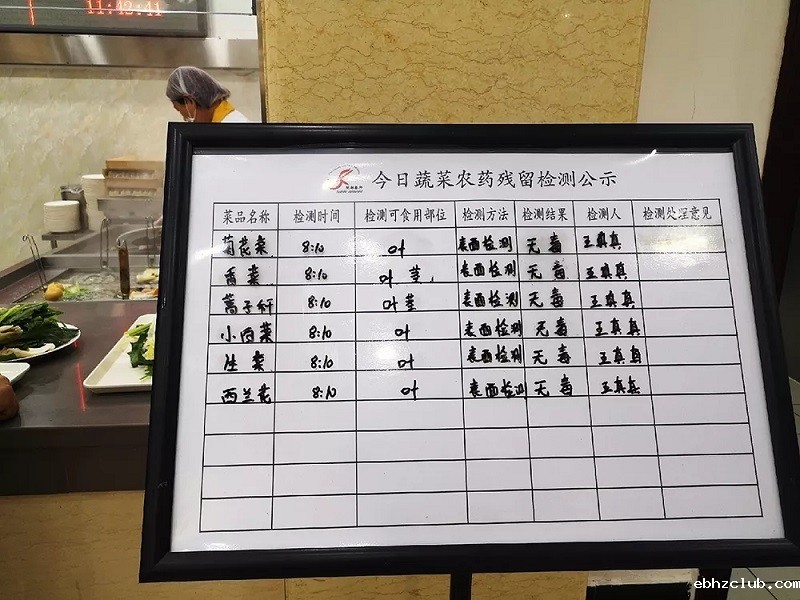 11:42:41
今日蔬菜农药残留检测公示
菜品名称 检测时间 检测可食用部位 检测方法 检测结果 检测人 检测处理意见
菊花菜 8:10 叶 表面检测 无毒 王真真
香菜 8:10 叶茎 表面检测 无毒 王真真
蒿子杆 8:10 叶茎 表面检测 无毒 王真真
小白菜 8:10 叶 表面检测 无毒 王真真
生菜 8:10 叶 表面检测 无毒 王真真
西兰花 8:10 叶 表面检测 无毒 王真真
ebhzclub.com